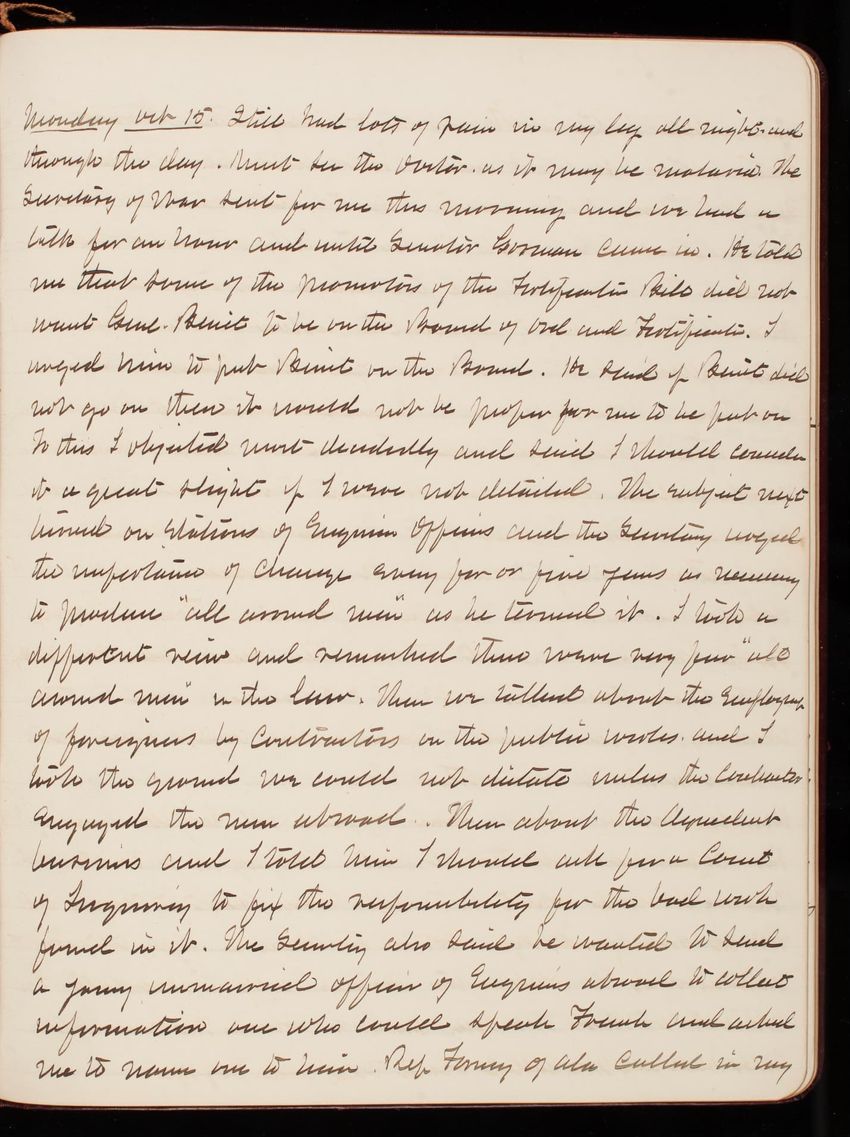 Monday Oct 15. Still had lots of pain in my leg all night and
through the day. Must see the Doctor. as it may be malaria. The
Secretary of War sent for me this morning and we had a
talk for an hour and until Senator Gorman came in. He told
me that some of the promoters of the Fortification Bill did not
want Genl. Benét to be on the Board of Ord and Fortificatn. I
urged him to put Benét on the Board. He said if Benét did
not go on then it would not be proper for me to be put on
To this I objected most decidedly and said I should consider
it a great slight if I were not detailed. The subject next
turned on stations of Engineer Officers and the Secretary urged
the importance of change every four or five years as necessary
to produce "all around men" as he termed it. I took a
different view and remarked there were very few "all
around men" in the law. Then we talked about the employment
of foreigners by Contractors on the public works. and I
took the ground we could not dictate unless the Contractor
engaged the men abroad. Then about the Aqueduct
business and I told him I should ask for a Court
of Inquiry to fix the responsibility for the bad work
found in it. The Secretary also said he wanted to send
a young unmarried officer of Engineers abroad to collect
information one who could speak French and asked
me to name one to him. Rep Forney of Ala called in my